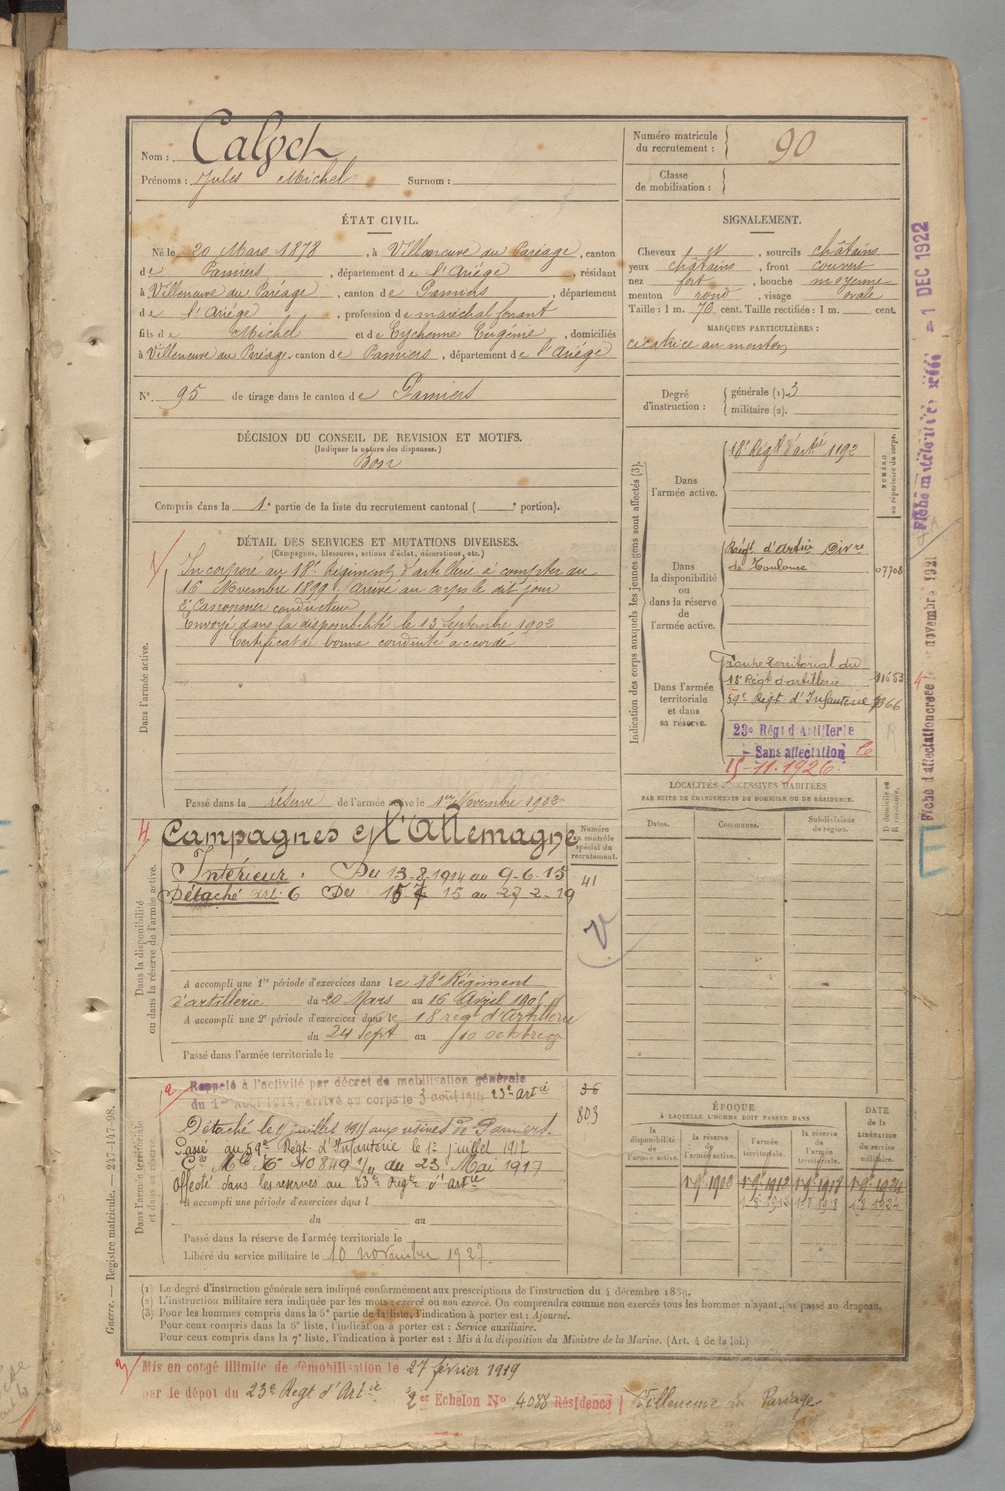 Nom : Calvet
Prénoms : Jules Michel Surnom :
Numéro matricule du recrutement : 90
Classe de mobilisation :
ÉTAT CIVIL.
Né le 20 Mars 1878, à Villeneuve du Paréage, canton
de Pamiers, département de l'Ariége, résidant
à Villeneuve du Paréage, canton de Pamiers, département
de l'Ariége, profession de maréchal ferrant
fils de Michel et de Eychenne Eugénie, domiciliés
à Villeneuve du Paréage, canton de Pamiers, département de l'Ariége
N° 95 de tirage dans le canton de Pamiers
SIGNALEMENT.
Cheveux et, sourcils châtains
yeux châtains, front couvert
nez fort, bouche moyenne
menton rond, visage ovale
Taille : 1 m. 76 cent. Taille rectifiée : 1 m. cent.
MARQUES PARTICULIÈRES :
cicatrice au menton
Degré d'instruction : générale (1). 3
militaire (2).
DÉCISION DU CONSEIL DE REVISION ET MOTIFS.
(Indiquer la nature des dispenses.)
Bon
Compris dans la 1e partie de la liste du recrutement cantonal ( e portion).
DÉTAIL DES SERVICES ET MUTATIONS DIVERSES.
(Campagnes, blessures, actions d'éclat, décorations, etc.)
Dans l'armée active.
Incorporé au 18e Régiment d'artillerie à compter du
16 Novembre 1899. Arrivé au corps le dit jour
2e Canonnier conducteur
Envoyé dans la disponibilité le 13 Septembre 1902
Certificat de bonne conduite accordé
Passé dans la réserve de l'armée active le 1er Novembre 1902
Indication des corps auxquels les jeunes gens sont affectés (3).
NUMÉRO au répertoire du corps.
Dans l'armée active.
18e Régt d'artie 1192
Dans la disponibilité ou dans la réserve de l'armée active.
Régt d'artie Divre
de Toulouse 07708
Dans l'armée territoriale et dans sa réserve.
Groupe territorial du
18e Régt d'artillerie 11653
59e Régt d'Infanterie
23e Régt d'Artillerie
Sans affectation
15-11-1926
Campagnes c/ l'Allemagne
Numéro au contrôle spécial du recrutement.
Intérieur : Du 13-8-1914 au 9-6-15
41
Dans la disponibilité ou dans la réserve de l'armée active.
A accompli une 1re période d'exercices dans le 18e Régiment
d'artillerie du 20 Mars au 16 Avril
A accompli une 2e période d'exercices dans le 18 régt d'Artillerie
du 24 Sept au 10 octobre
Passé dans l'armée territoriale le
LOCALITÉS SUCCESSIVES HABITÉES
PAR SUITE DE CHANGEMENTS DE DOMICILE OU DE RÉSIDENCE.
Dates. Communes. Subdivisions de région. D domicile ou R résidence.
Dans l'armée territoriale et dans sa réserve.
Rappelé à l'activité par décret de mobilisation générale
du 1er Août 1914, arrivé au corps le 3 août 1914 23e Artie
36
803
Détaché le juillet 1915 aux usines de Pamiers.
Passé au 59e Régt d'Infanterie le 1er juillet 1917
Cre Mlle N° 30849 1/11 du 23 Mai 1917
Affecté dans les reserves au 23e Régt d'artie
A accompli une période d'exercices dans l
du au
Passé dans la réserve de l'armée territoriale le
Libéré du service militaire le 10 novembre 1927
ÉPOQUE
À LAQUELLE L'HOMME DOIT PASSER DANS
DATE de la LIBÉRATION du service militaire.
la disponibilité de l'armée active. la réserve de l'armée active. l'armée territoriale. la réserve de l'armée territoriale.
1-9bre-1902 1-9bre-1912 1-9bre-1918 1-9bre-1924
1-8-1912 1-8-1918 1-8-1924
(1) Le degré d'instruction générale sera indiqué conformément aux prescriptions de l'instruction du 4 décembre 1889.
(2) L'instruction militaire sera indiquée par les mots : exercé ou non exercé. On comprendra comme non exercés tous les hommes n'ayant pas passé au drapeau.
(3) Pour les hommes compris dans la 5e partie de la liste, l'indication à porter est : Ajourné.
Pour ceux compris dans la 6e liste, l'indication à porter est : Service auxiliaire.
Pour ceux compris dans la 7e liste, l'indication à porter est : Mis à la disposition du Ministre de la Marine. (Art. 4 de la loi.)
Mis en congé illimité de démobilisation le 27 février 1919
par le dépôt du 23e Régt d'Artie 2er Echelon No 4088 Résidence Villeneuve du Paréage
Guerre. — Registre matricule. — 247-147-98.
1 DEC 1922